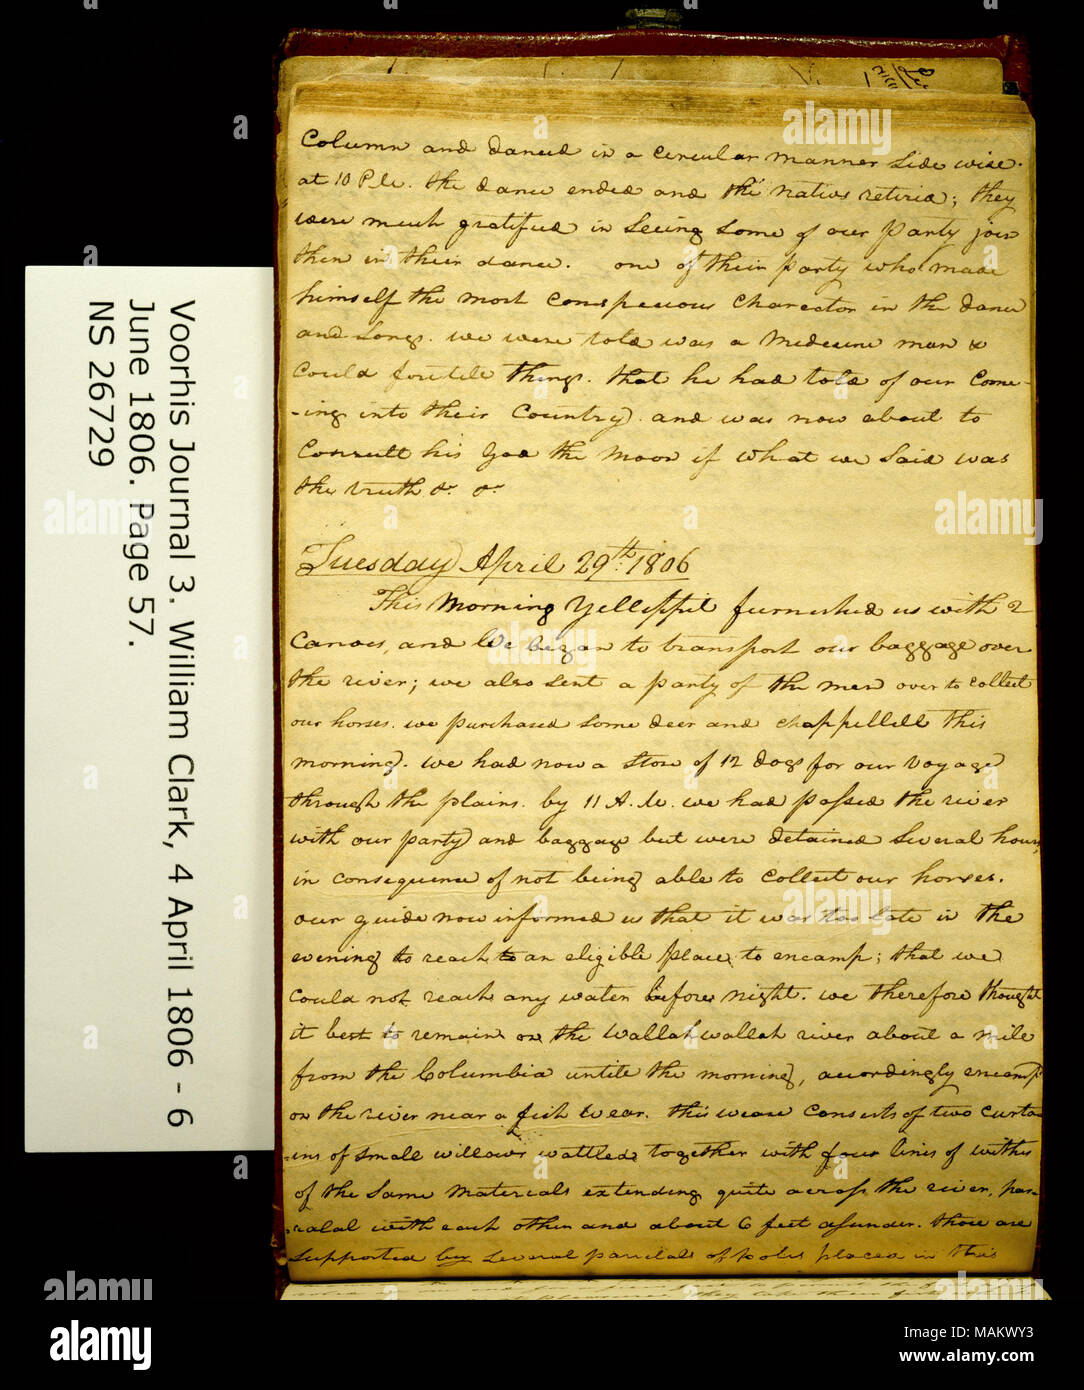 Column and danced in a cercular manner Side wise.
at 10 P.M. the dance ended and the nativs retired; they
were much gratified in Seeing Some of our Party join
them in their dance. one of their party who made
himself the most Conspecious Charecter in the dance
and Songs. we were told was a Medesene man &
Could foretell things. that he had told of our Come-
-ing into their Country. and was now about to
Consult his God the Moon if what we Said was
the truth &c. &c.
Tuesday April 29th. 1806
This Morning Yelleppit furnished us with 2
Canoes, and We began to transport our baggage over
the river; we also Sent a party of the men over to collect
our horses. we purchased Some deer and chappellell this
morning. we had now a Store of 12 dogs for our voyage
through the plains. by 11 A.M. we had passed the river
with our party and baggage but were detained Several hours
in consequence of not being able to Collect our horses.
our guide now informed us that it was too late in the
evening to reach to an eligible place to encamp; that we
Could not reach any water before night. we therefore thought
it best to remain on the WallahWallah river about a mile
from the Columbia untill the morning, accordingly encamp
on the river near a fish wear. this weare Consists of two curta
-ins of Small willows wattled together with four lines of withes
of the Same Materials extending quite across the river, par-
-ralal with each other and about 6 feet asunder. those are
Supported by Several parrelals of poles placed in this
Voorhis Journal 3. William Clark, 4 April 1806 - 6
June 1806. Page 57.
NS 26729
alamy
Image ID: MAKWY3
www.alamy.com